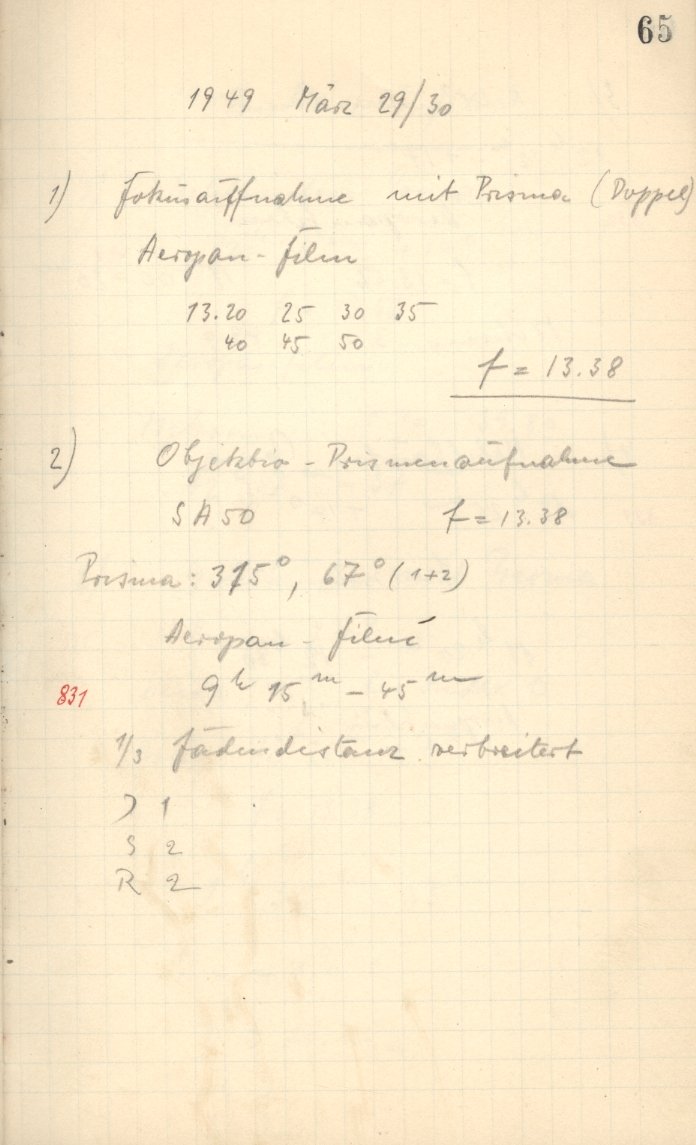 65
1949 März 29/30
1) Fokusaufnahme mit Prisma (Doppel)
Aeropan-Film
13.20 25 30 35
40 45 50
f = 13.38
2) Objektiv-Prismenaufnahme
SA 50 f = 13.38
Prisma: 315°, 67° (1+2)
Aeropan-Film
831 9h 15m – 45m
1/3 Fadendistanz verbreitert
1
S 2
R 2